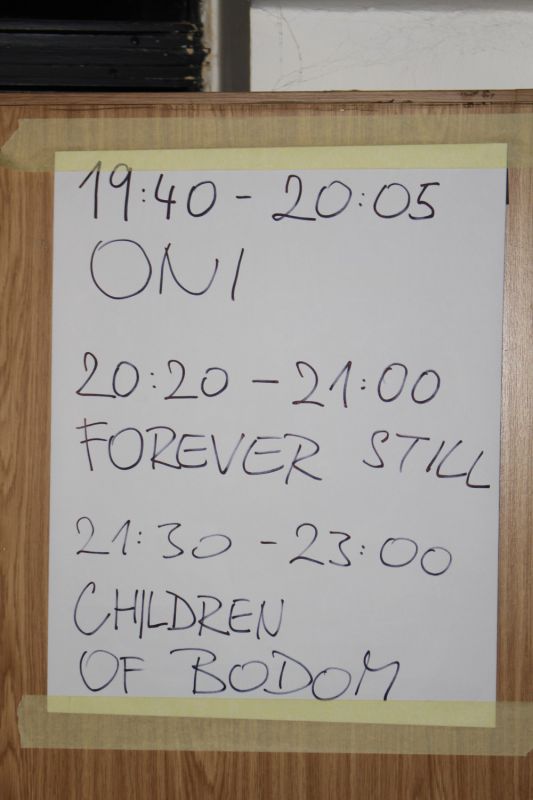 19:40 - 20:05
ONI
20:20 - 21:00
FOREVER STILL
21:30 - 23:00
CHILDREN
OF BODOM